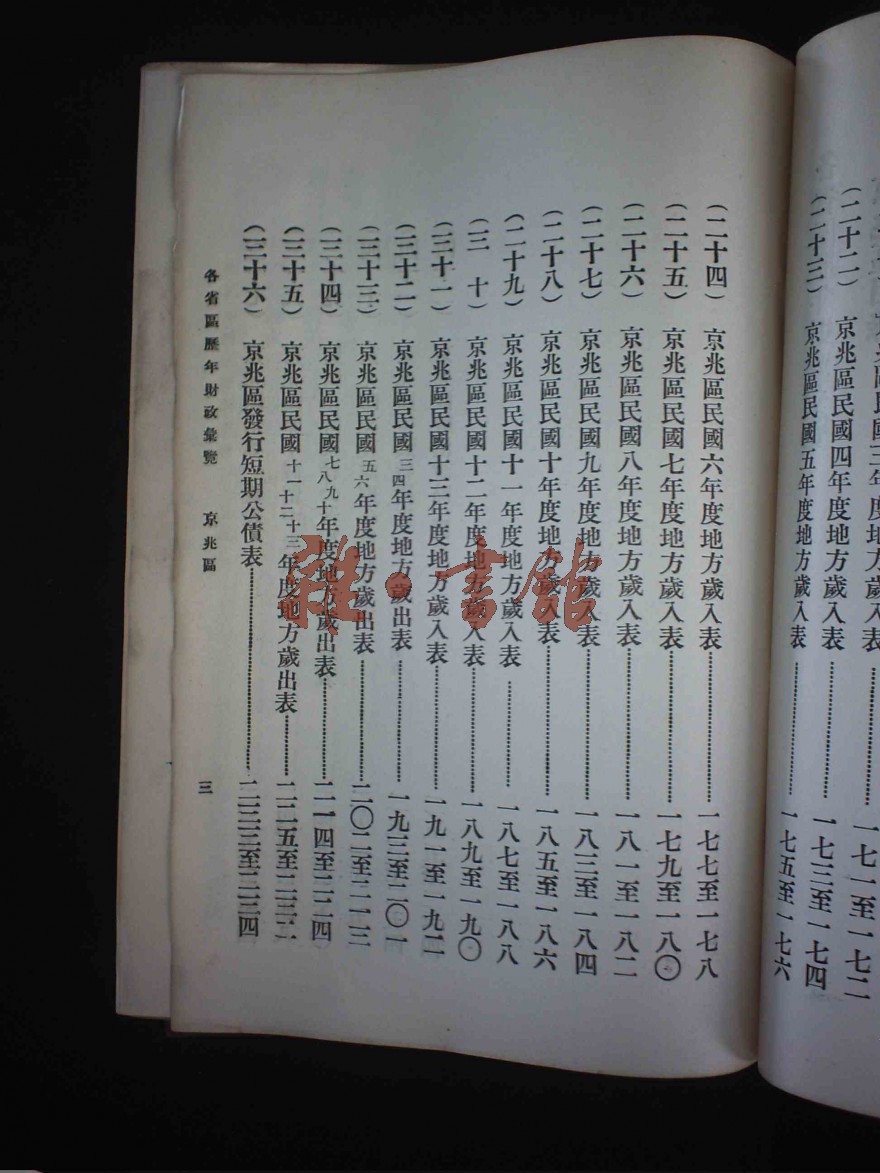 京兆區民國三年度地方歲入表……一七一至一七二
（二十二） 京兆區民國四年度地方歲入表……一七三至一七四
（二十三） 京兆區民國五年度地方歲入表……一七五至一七六
（二十四） 京兆區民國六年度地方歲入表……一七七至一七八
（二十五） 京兆區民國七年度地方歲入表……一七九至一八〇
（二十六） 京兆區民國八年度地方歲入表……一八一至一八二
（二十七） 京兆區民國九年度地方歲入表……一八三至一八四
（二十八） 京兆區民國十年度地方歲入表……一八五至一八六
（二十九） 京兆區民國十一年度地方歲入表……一八七至一八八
（三 十） 京兆區民國十二年度地方歲入表……一八九至一九〇
（三十一） 京兆區民國十三年度地方歲入表……一九一至一九二
（三十二） 京兆區民國三四年度地方歲出表……一九三至二〇一
（三十三） 京兆區民國五六年度地方歲出表……二〇二至二一三
（三十四） 京兆區民國七八九十年度地方歲出表……二一四至二二四
（三十五） 京兆區民國十一十二十三年度地方歲出表……二二五至二三二
（三十六） 京兆區發行短期公債表……二三三至二三四
各省區歷年財政彙覽 京兆區 三
雜·書館